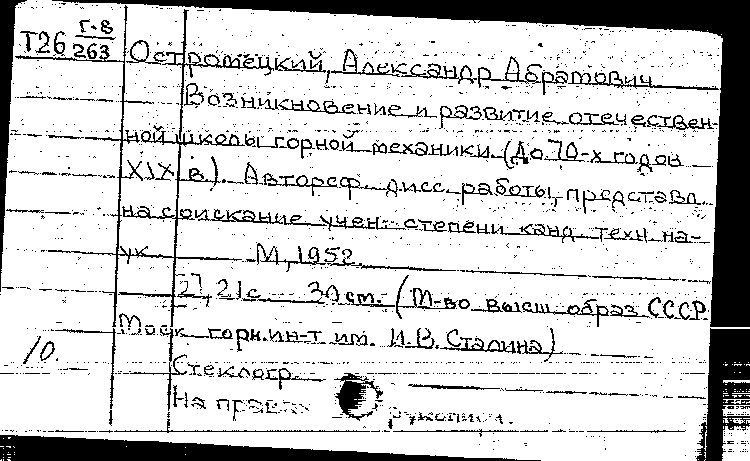 Т26 Г-8
263
Остромецкий, Александр Абрамович
Возникновение и развитие отечествен-
ной школы горной механики (До 70-х годов
XIX в.). Автореф. дисс. работы, представл.
на соискание учен. степени канд. техн. на-
ук М., 1952.
21 с. 30 см. (М-во высш. образ. СССР.
Моск. горн. ин-т им. И.В. Сталина)
10.
Стеклогр.
На правах рукописи.